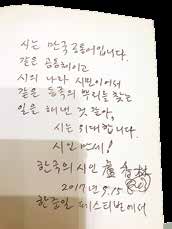 시는 만국공통어입니다.
같은 공동체이고
시의 나라 시민이어서
같은 동족의 뿌리를 찾는
일을 해낸 것 같아,
시는 위대합니다.
시인 만세!
한국의 시인 盧
2017년 9.15
한중일 페스티벌에서